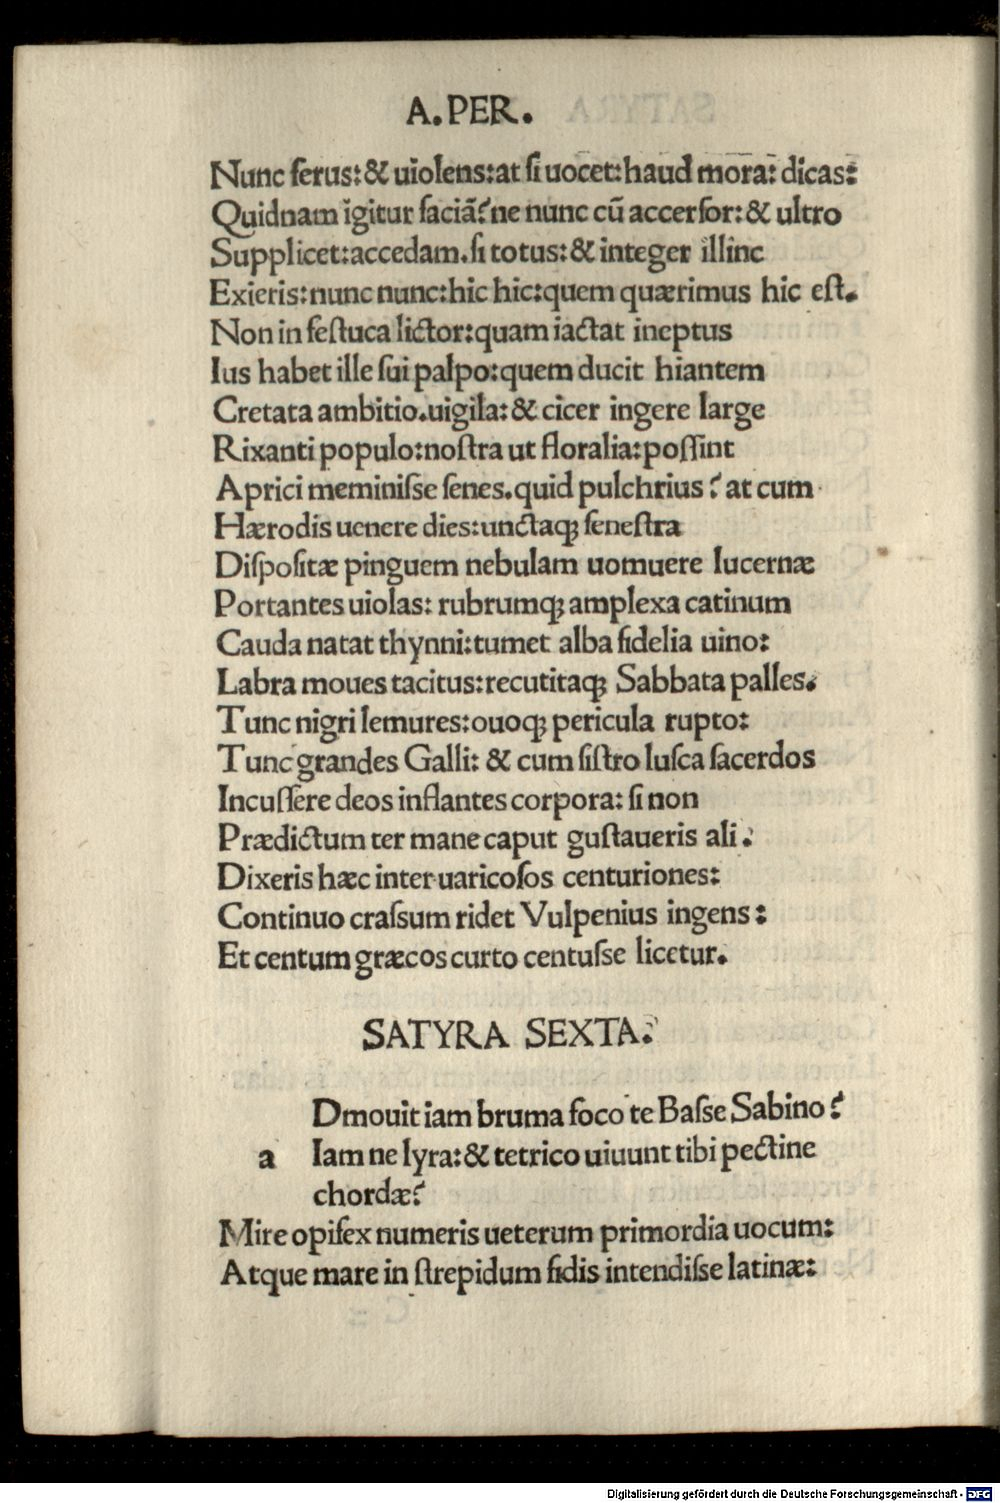 A.PER.
Nunc ferus:& uiolens:at si uocet:haud mora: dicas:
Quidnam igitur faciã? ne nunc cũ accersor:& ultro
Supplicet:accedam. si totus:& integer illinc
Exieris:nunc nunc:hic hic:quem quærimus hic est.
Non in festuca lictor:quam iactat ineptus
Ius habet ille sui palpo:quem ducit hiantem
Cretata ambitio.uigila:& cicer ingere large
Rixanti populo:nostra ut floralia:possint
Aprici meminisse senes.quid pulchrius? at cum
Hærodis uenere dies:unctaqꝫ fenestra
Dispositæ pinguem nebulam uomuere lucernæ
Portantes uiolas: rubrumqꝫ amplexa catinum
Cauda natat thynni:tumet alba fidelia uino:
Labra moues tacitus:recutitaqꝫ Sabbata palles.
Tunc nigri lemures:ouoqꝫ pericula rupto:
Tunc grandes Galli: & cum sistro lusca sacerdos
Incussere deos inflantes corpora: si non
Prædictum ter mane caput gustaueris ali.
Dixeris hæc inter uaricosos centuriones:
Continuo crassum ridet Vulpenius ingens:
Et centum græcos curto centusse licetur.
SATYRA SEXTA.
Dmouit iam bruma foco te Basse Sabino?
a Iam ne lyra:& tetrico uiuunt tibi pectine
chordæ?
Mire opifex numeris ueterum primordia uocum:
Atque mare in strepidum fidis intendisse latinæ:
Digitalisierung gefördert durch die Deutsche Forschungsgemeinschaft - DFG